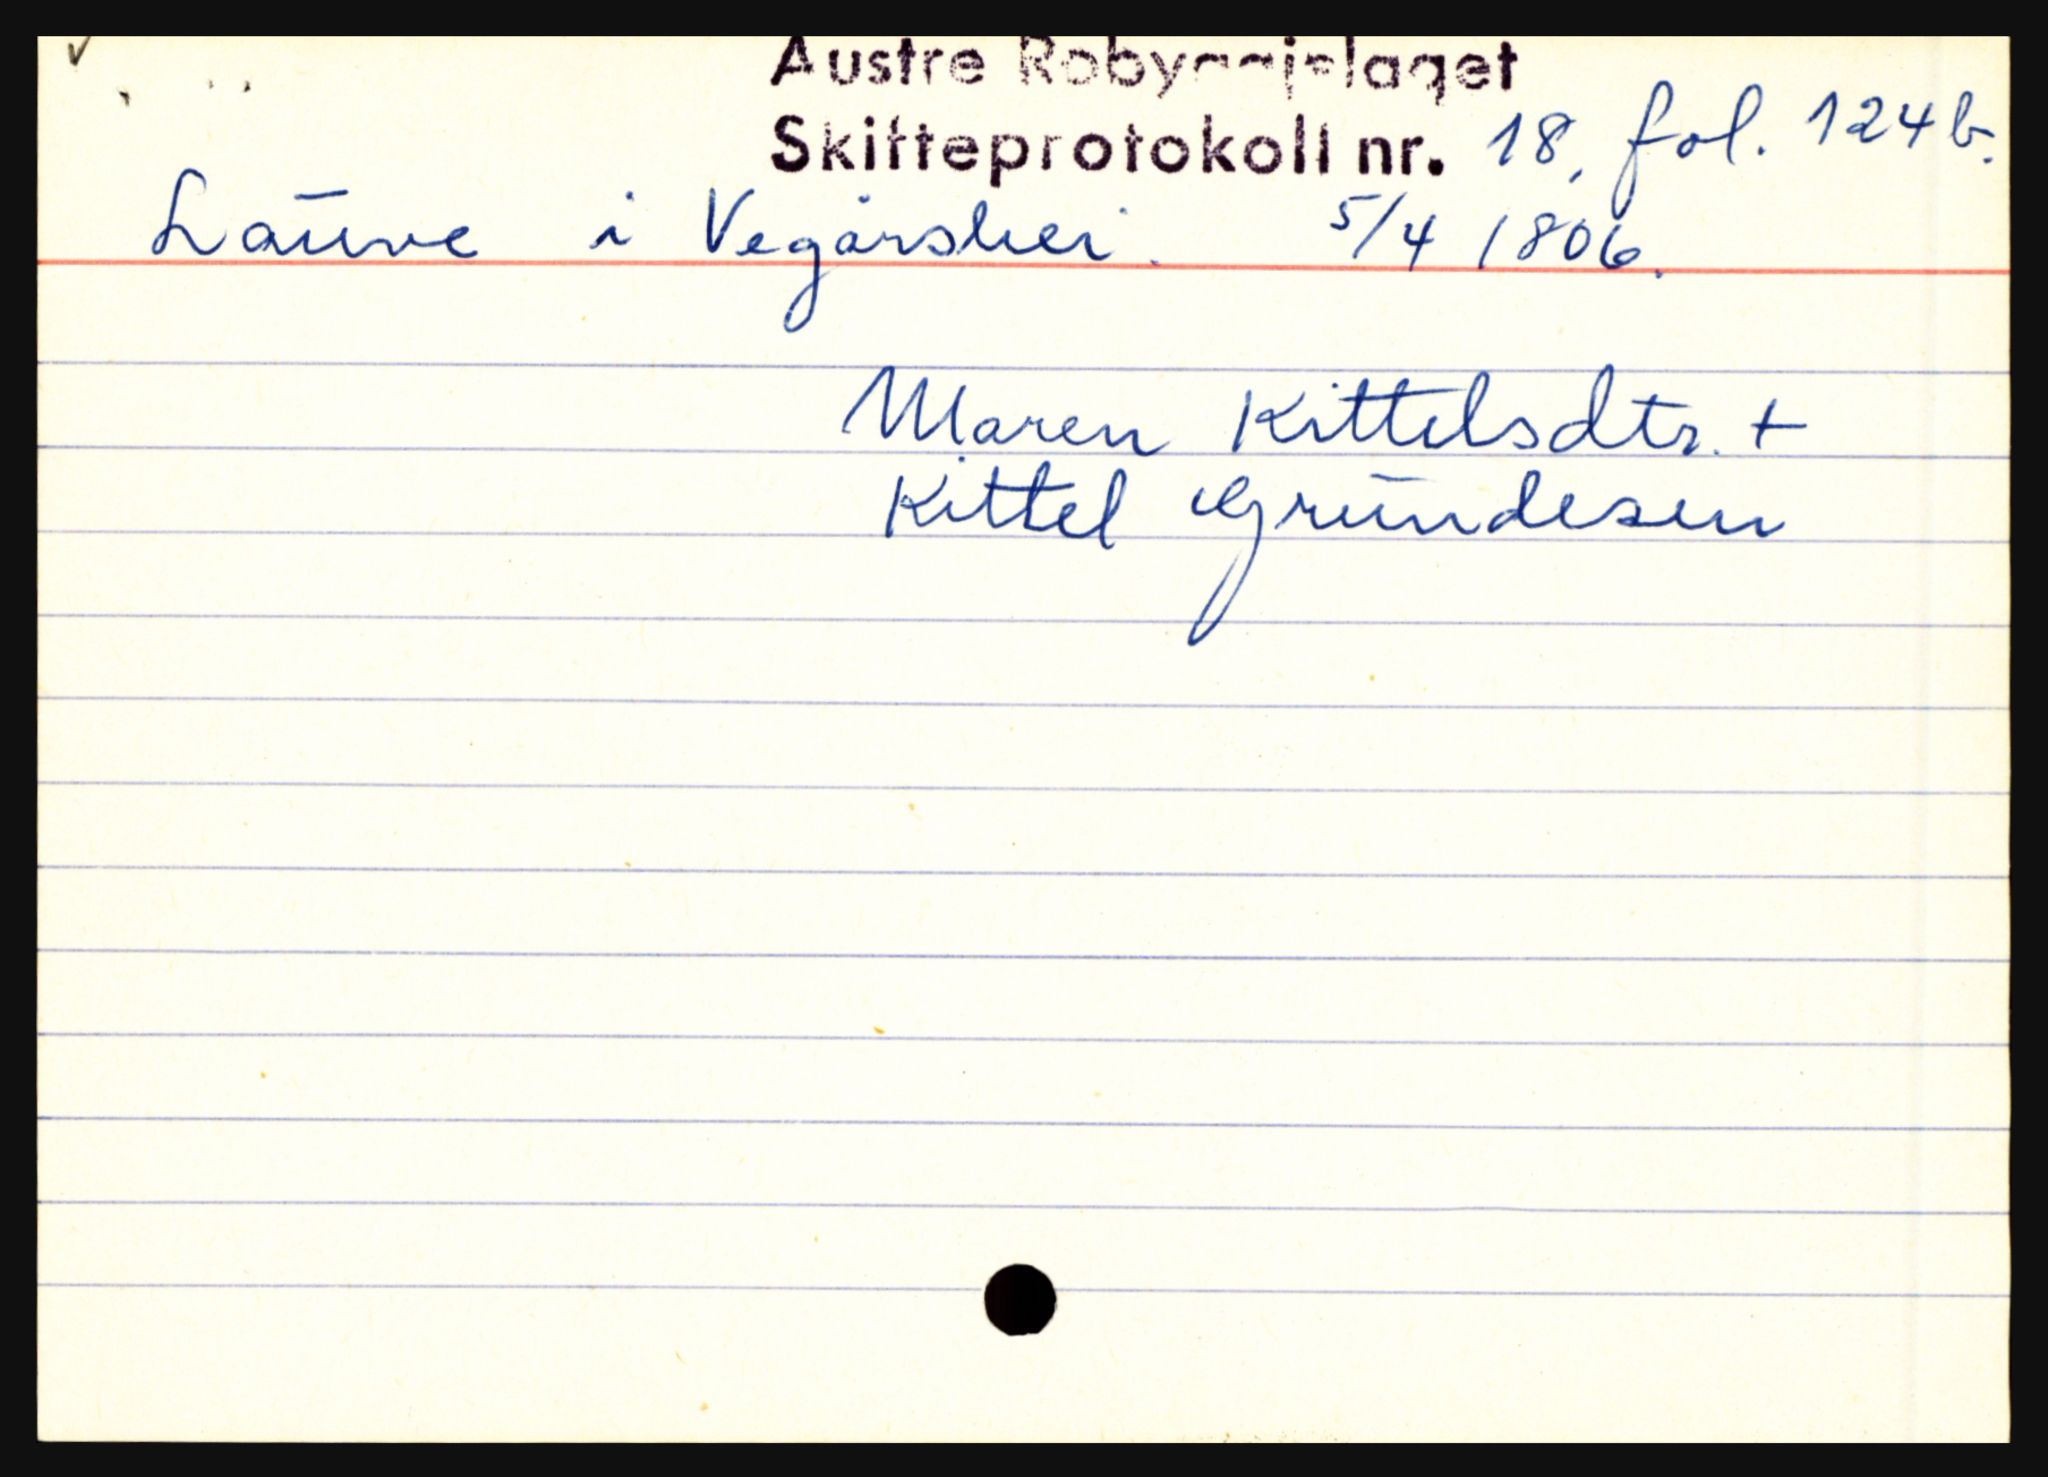 Austre Robyggjelaget
Skifteprotokoll nr. 18, fol. 124 b.
Lauve i Vegårshei. 5/4 1806.
Maren Kittelsdtr. +
Kittel Grundesen